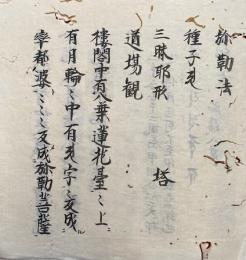 弥勒法
種子 𑖧
三昧耶形 塔
道場観
樓閣中有八葉蓮花臺〻上
有月輪〻中有𑖧字〻変成
率都婆〻〻〻変成弥勒菩薩